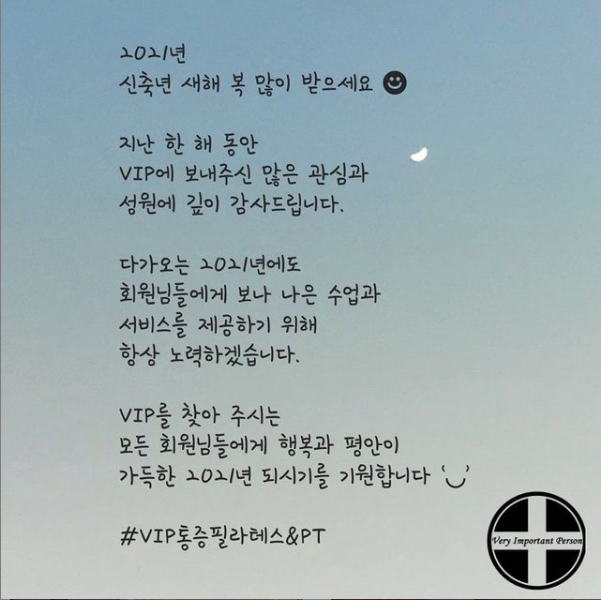 2021년
신축년 새해 복 많이 받으세요
지난 한 해 동안
VIP에 보내주신 많은 관심과
성원에 깊이 감사드립니다.
다가오는 2021년에도
회원님들에게 보나 나은 수업과
서비스를 제공하기 위해
항상 노력하겠습니다.
VIP를 찾아 주시는
모든 회원님들에게 행복과 평안이
가득한 2021년 되시기를 기원합니다
#VIP통증필라테스&PT
Very Important Person